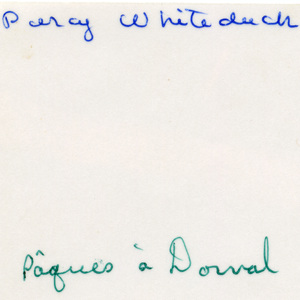 Percy Whiteduck
Pâques à Dorval